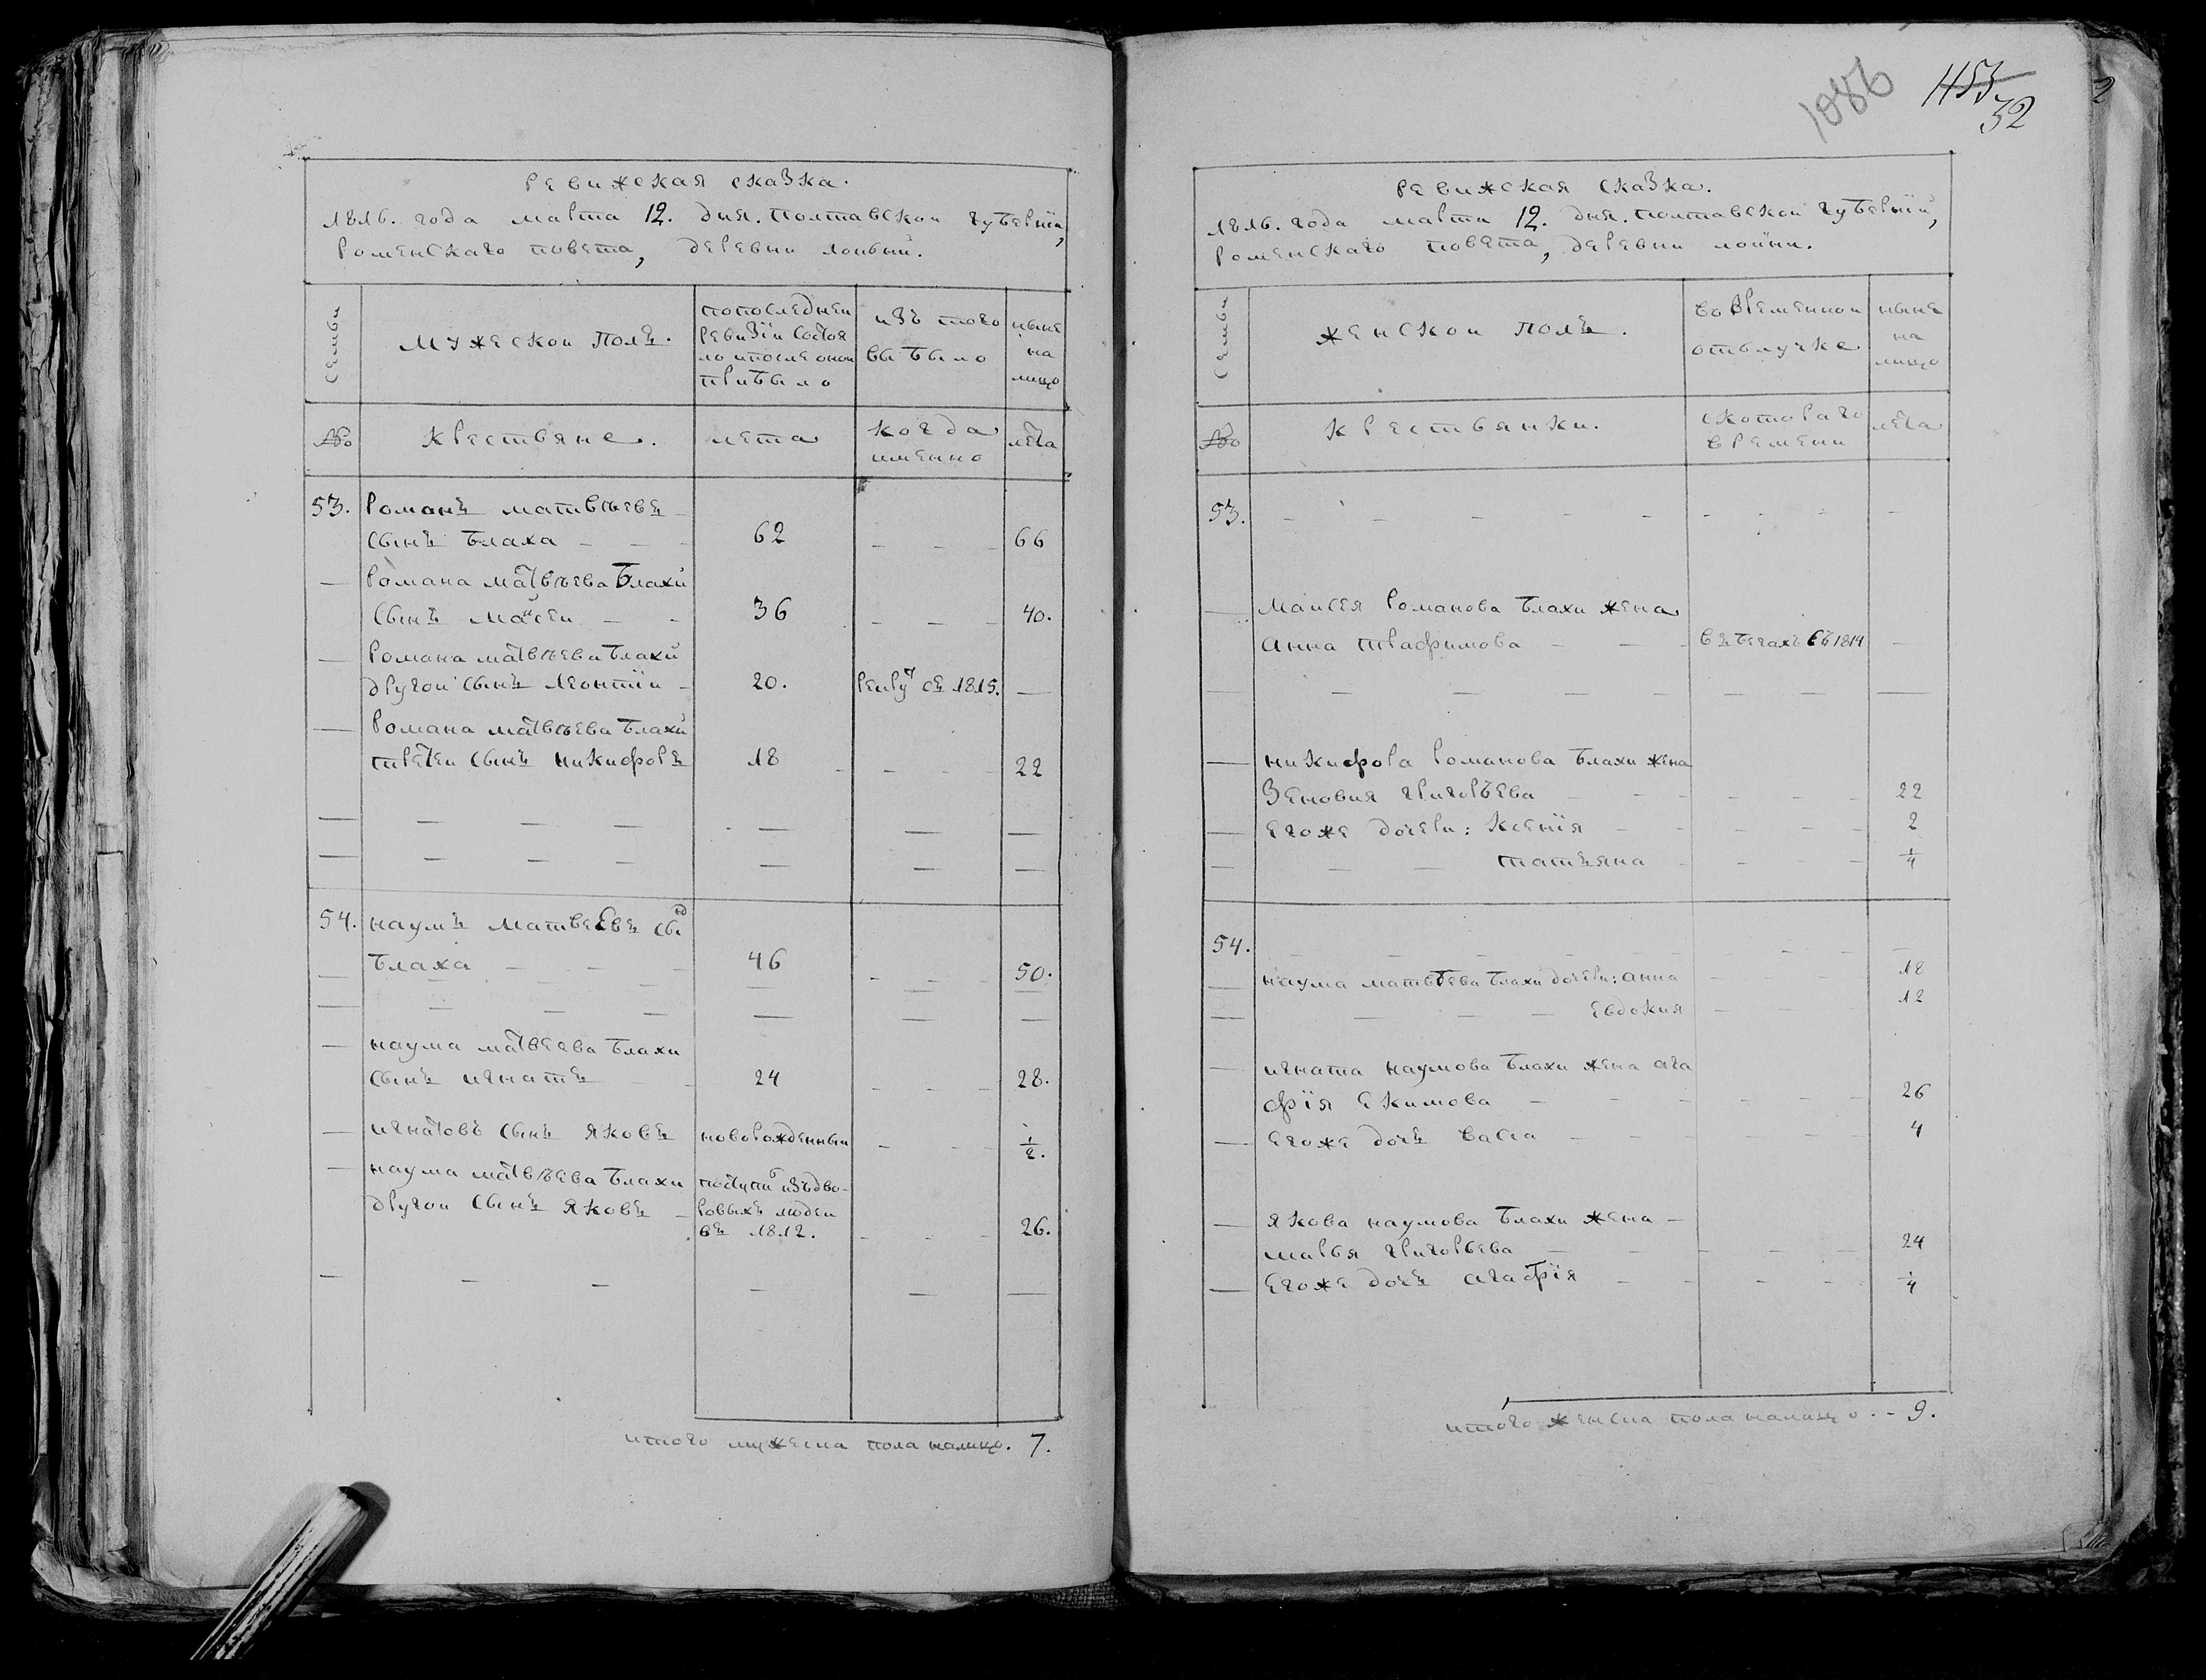 Ревижская сказка.
1816. года марта 12. дня. полтавской губернїи,
роменскаго повета, деревни
Семьи
мужескои полъ.
попоследнеи
ревизїи состоя
ло ипосле онои
прибыло
изъ того
выбыло
ныне
на
лицо
№
крестьяне.
лета
когда
именно
лета
53.
Романъ матвѣевъ
сынъ блаха
62
66
Романа матвѣева блахи
сынъ моисеи
36
40.
Романа матвѣева блахи
другои сынъ леонтїи
20.
съ 1815.
Романа матвѣева блахи
третеи сынъ никифоръ
18
22
54.
наумъ матвеевъ сынъ
блаха
46
50.
наума матвеева блахи
сынъ игнатъ
24
28.
игнатовъ сынъ яковъ
новорожденныи
1/2.
наума матвѣева блахи
другои сынъ яковъ
поступи изъдво-
ровыхъ людеи
въ 1812.
26.
итого мужеска пола налицо. 7.
1086
1155
32
Ревижская сказка.
1816. года марта 12. дня. полтавской губернїи,
роменскаго повета, деревни
Семьи
женскои полъ.
во временнои
отлучке
ныне
на
лицо
№
крестьянки.
скотораго
времени
лета
53.
Моисея Романова блахи жена
анна трафимова
въ бегахъ съ 1814
никифора романова блахи жена
Зеновия григорьева
22
егоже дочери: Ксенїя
2
татьяна
1/4
54.
наума матвеева блахи дочери: анна
18
евдокия
12
игната наумова блахи жена ага
фїя екимова
26
егоже дочь васса
4
якова наумова блахи жена
марья григорьева
24
егоже дочь агафїя
1/4
итого женска пола налицо. - 9.